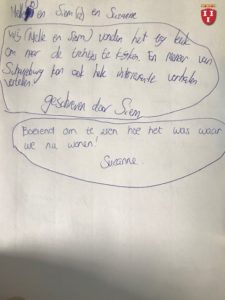 en Siem en Suzanne
Wij (Nelle en Siem) vonden het erg leuk
om naar de treintjes te kijken. En meneer van
kon ook hele interessante verhalen
vertellen!
geschreven door Siem
Boeiend om te zien hoe het was waar
we nu wonen!
Suzanne